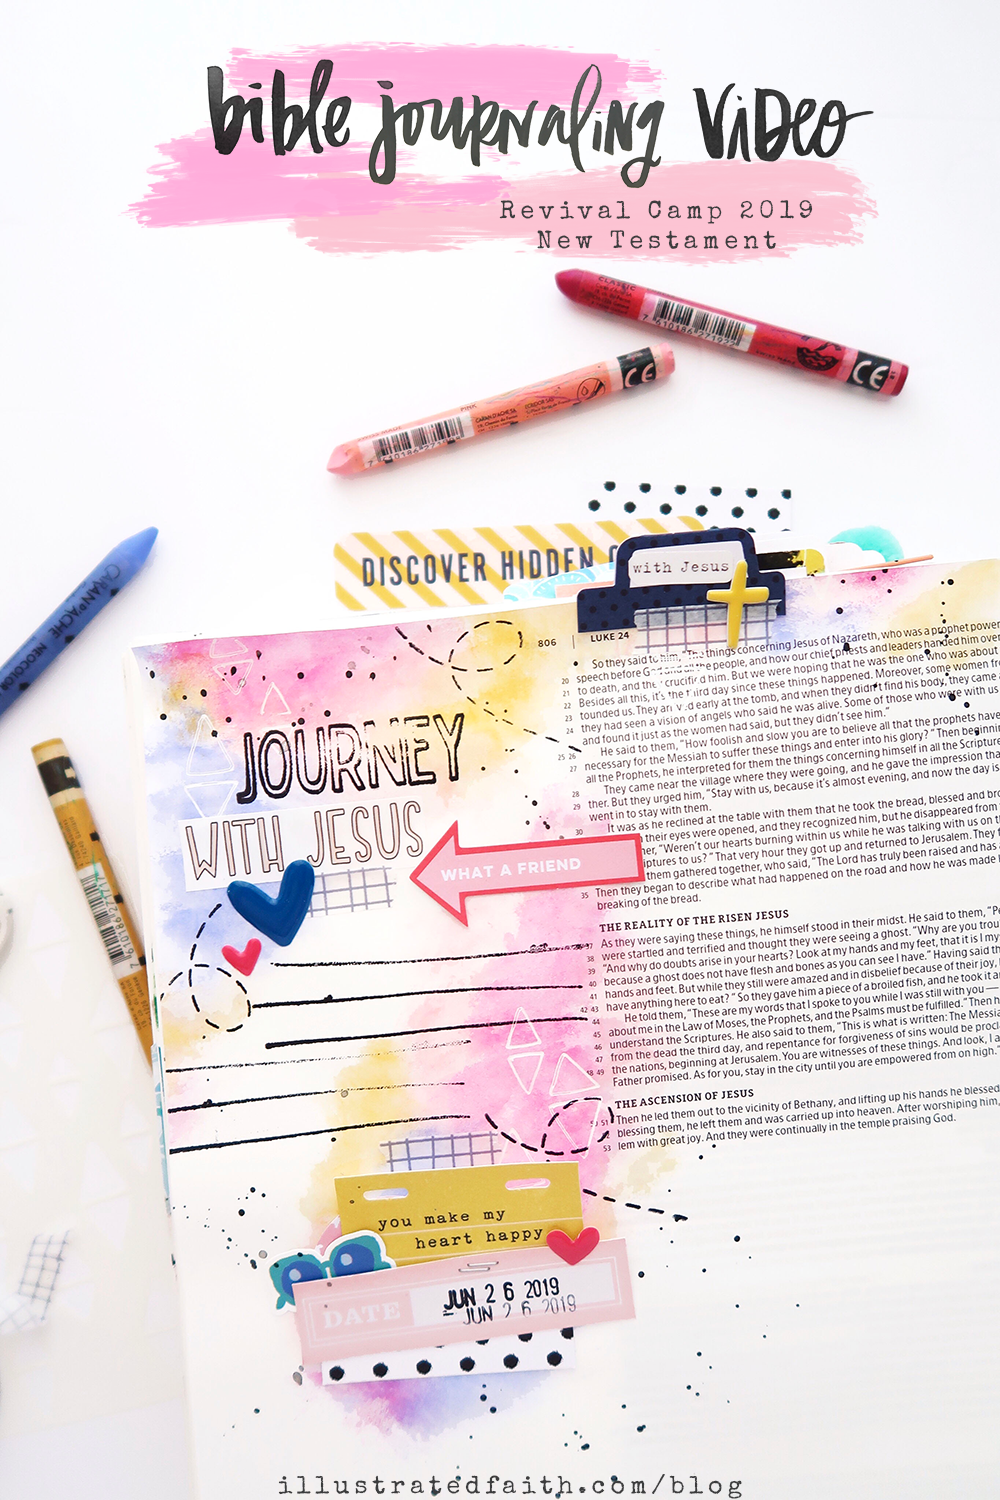 bible journaling video
Revival Camp 2019
New Testament
CLASSIC
7 610186 271922
CE
PINK
CARAN D'ACHE SA
CE
CARAN D'ACHE NEOCOLOR
DISCOVER HIDDEN
with Jesus
806 LUKE 24
So they said to him, "The things concerning Jesus of Nazareth, who was a prophet power
speech before God and all the people, and how our chief priests and leaders handed him over
to death, and they crucified him. But we were hoping that he was the one who was about
Besides all this, it's the third day since these things happened. Moreover, some women from
tounded us. They arrived early at the tomb, and when they didn't find his body, they came
they had seen a vision of angels who said he was alive. Some of those who were with us
and found it just as the women had said, but they didn't see him."
He said to them, "How foolish and slow you are to believe all that the prophets have
necessary for the Messiah to suffer these things and enter into his glory?" Then beginning
all the Prophets, he interpreted for them the things concerning himself in all the Scripture
They came near the village where they were going, and he gave the impression tha
ther. But they urged him, "Stay with us, because it's almost evening, and now the day is
went in to stay with them.
It was as he reclined at the table with them that he took the bread, blessed and bro
their eyes were opened, and they recognized him, but he disappeared from
"Weren't our hearts burning within us while he was talking with us on th
to us?" That very hour they got up and returned to Jerusalem. They f
them gathered together, who said, "The Lord has truly been raised and has a
Then they began to describe what had happened on the road and how he was made
breaking of the bread.
THE REALITY OF THE RISEN JESUS
As they were saying these things, he himself stood in their midst. He said to them, "Pe
were startled and terrified and thought they were seeing a ghost. "Why are you trou
"And why do doubts arise in your hearts? Look at my hands and my feet, that it is I my
because a ghost does not have flesh and bones as you can see I have." Having said th
hands and feet. But while they still were amazed and in disbelief because of their joy,
have anything here to eat?" So they gave him a piece of a broiled fish, and he took it a
He told them, "These are my words that I spoke to you while I was still with you —
about me in the Law of Moses, the Prophets, and the Psalms must be fulfilled." Then h
understand the Scriptures. He also said to them, "This is what is written: The Messia
from the dead the third day, and repentance for forgiveness of sins would be procl
the nations, beginning at Jerusalem. You are witnesses of these things. And look, I a
Father promised. As for you, stay in the city until you are empowered from on high."
THE ASCENSION OF JESUS
Then he led them out to the vicinity of Bethany, and lifting up his hands he blessed
blessing them, he left them and was carried up into heaven. After worshiping him,
lem with great joy. And they were continually in the temple praising God.
JOURNEY
WITH JESUS
WHAT A FRIEND
you make my
heart happy
DATE
JUN 26 2019
JUN 26 2019
illustratedfaith.com/blog